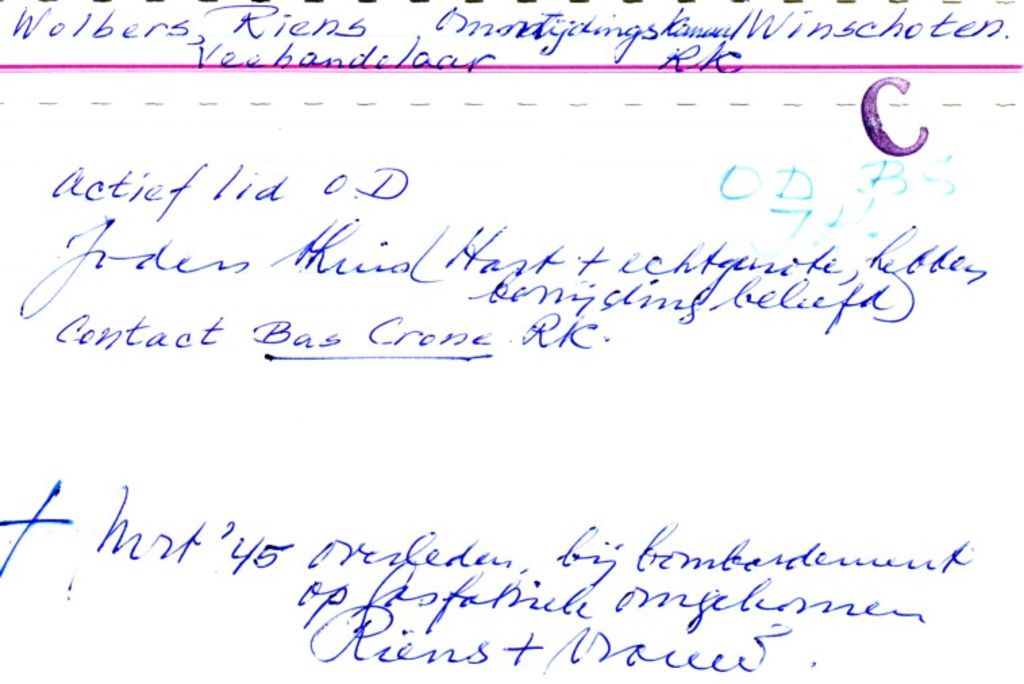 Wolbers, Riens Omsnijdingskanaal Winschoten.
Veehandelaar RK
C
Actief lid O.D
OD BS
J.H.
Joden thuis (Hart + echtgenote, hebben
bevrijding beleefd)
Contact Bas Crone RK.
† Mrt '45 overleden, bij bombardement
op gasfabriek omgekomen
Riëns + vrouw.